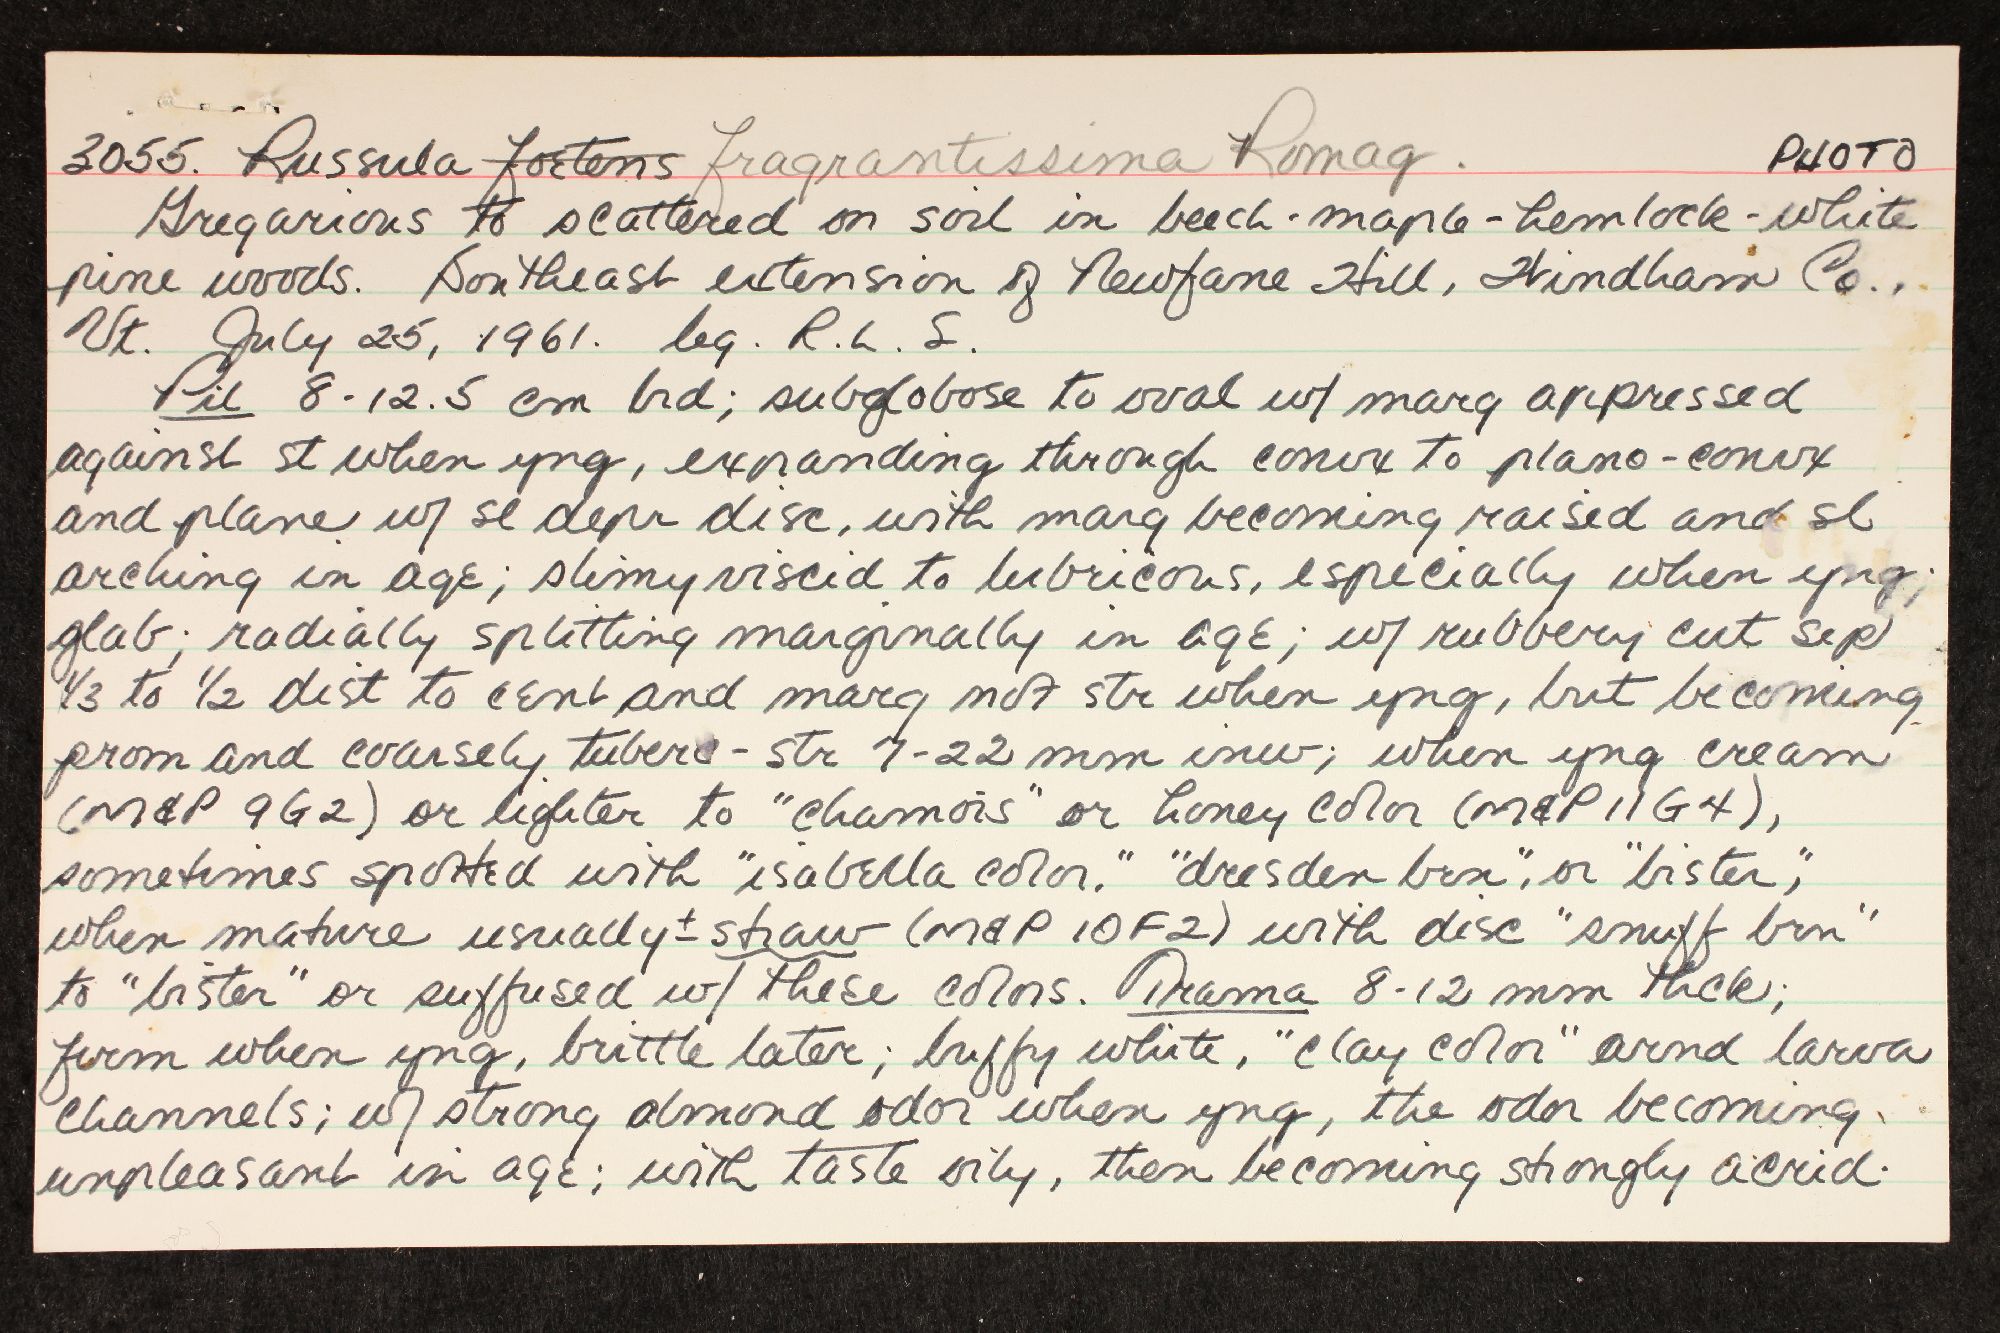 3055. Russula foetens fragrantissima Romag. PHOTO
Gregarious to scattered on soil in beech-maple-hemlock-white
pine woods. Southeast extension of Newfane Hill, Windham Co.,
Vt. July 25, 1961. leg. R.L.S.
Pil 8-12.5 cm brd; subglobose to oval w/ marg appressed
against st when yng, expanding through convx to plano-convx
and plane w/ sl depr disc, with marg becoming raised and sl
arching in age; slimy viscid to lubricous, especially when yng;
glab; radially splitting marginally in age; w/ rubbery cut sep
1/3 to 1/2 dist to cent and marg not str when yng, but becoming
prom and coarsely tuberc-str 7-22 mm inw; when yng cream
(M&P 9G2) or lighter to "chamois" or honey color (M&P 11G4),
sometimes spotted with "isabella color," "dresden brn", or "bister",
when mature usually ± straw (M&P 10F2) with disc "snuff brn"
to "bister" or suffused w/ these colors. Trama 8-12 mm thck;
firm when yng, brittle later; buffy white, "clay color" arnd larva
channels; w/ strong almond odor when yng, the odor becoming
unpleasant in age; with taste oily, then becoming strongly acrid.